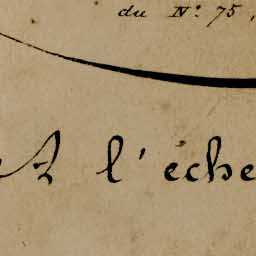 du N.º 75,
A l'éche